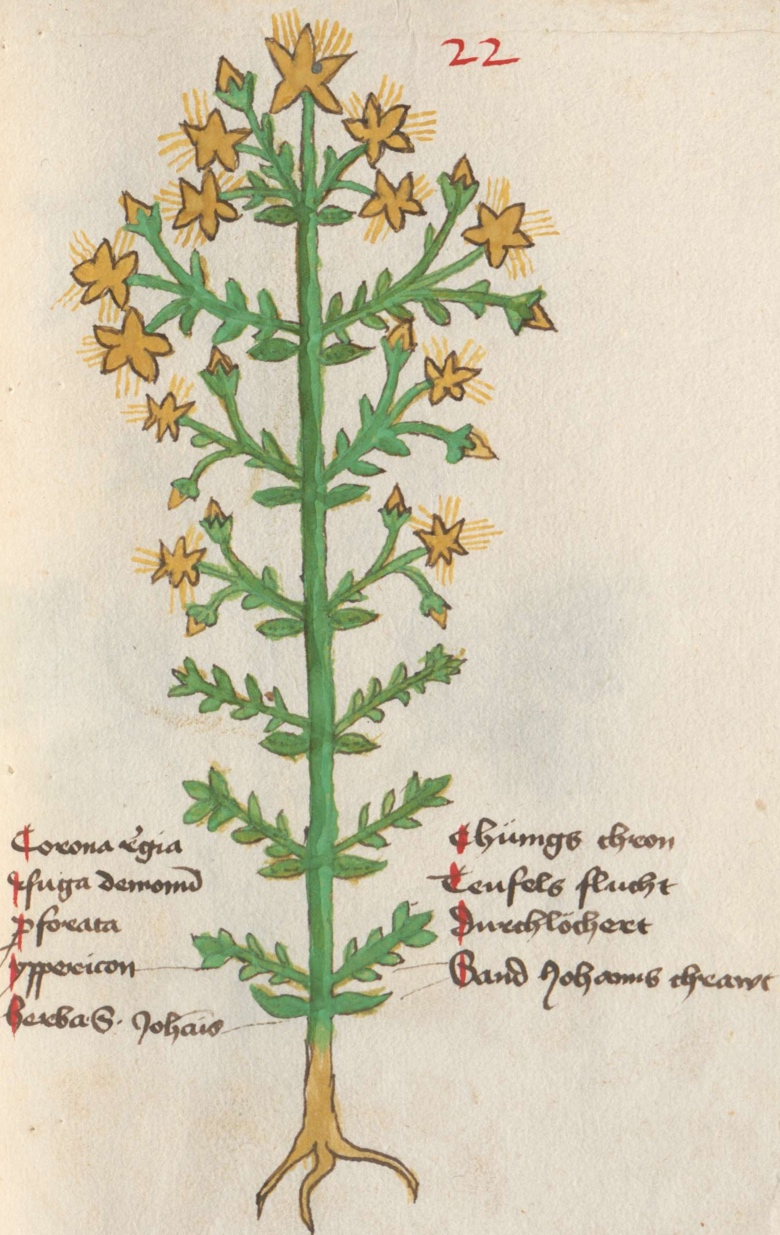 22
Corona regia
ffuga demonũ
pforata
yppericon
herba·S· Johãis
Chünigs chron
Teufels flucht
Durchlöchert
Sand Johanns chrawt